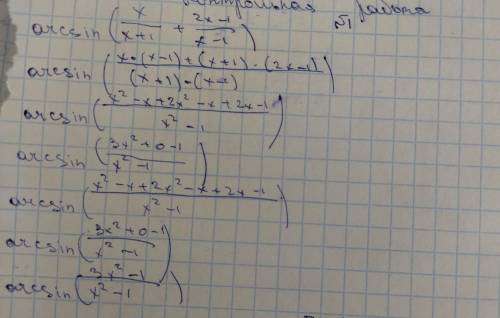 контрольная работа
№1
arcsin(x/(x+1) + (2x-1)/(x-1))
arcsin((x·(x-1)+(x+1)·(2x-1))/((x+1)·(x-1)))
arcsin((x²-x+2x²-x+2x-1)/(x²-1))
arcsin((3x²+0-1)/(x²-1))
arcsin((x²-x+2x²-x+2x-1)/(x²-1))
arcsin((3x²+0-1)/(x²-1))
arcsin((3x²-1)/(x²-1))